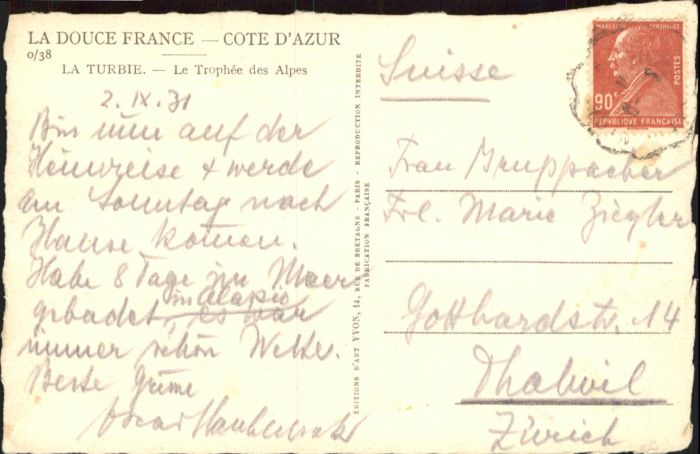 LA DOUCE FRANCE — COTE D'AZUR
0/38
LA TURBIE. — Le Trophée des Alpes
2. IX. 31
Bin nun auf der
Heimreise + werde
am Sonntag nach
Hause komen.
Habe 8 Tage im Meer
in Alassio
gebadet, es war
immer schön Wetter.
Beste Grüsse
Oscar
EDITIONS D'ART YVON, 14, RUE DE BRETAGNE - PARIS - REPRODUCTION INTERDITE
FABRICATION FRANÇAISE
MARCELIN BERTHELOT
90c
POSTES
REPVBLIQUE FRANÇAISE
Suisse
Frau Gruppacher
Frl. Marie Ziegler
Gotthardstr. 14
Thalwil
Zürich